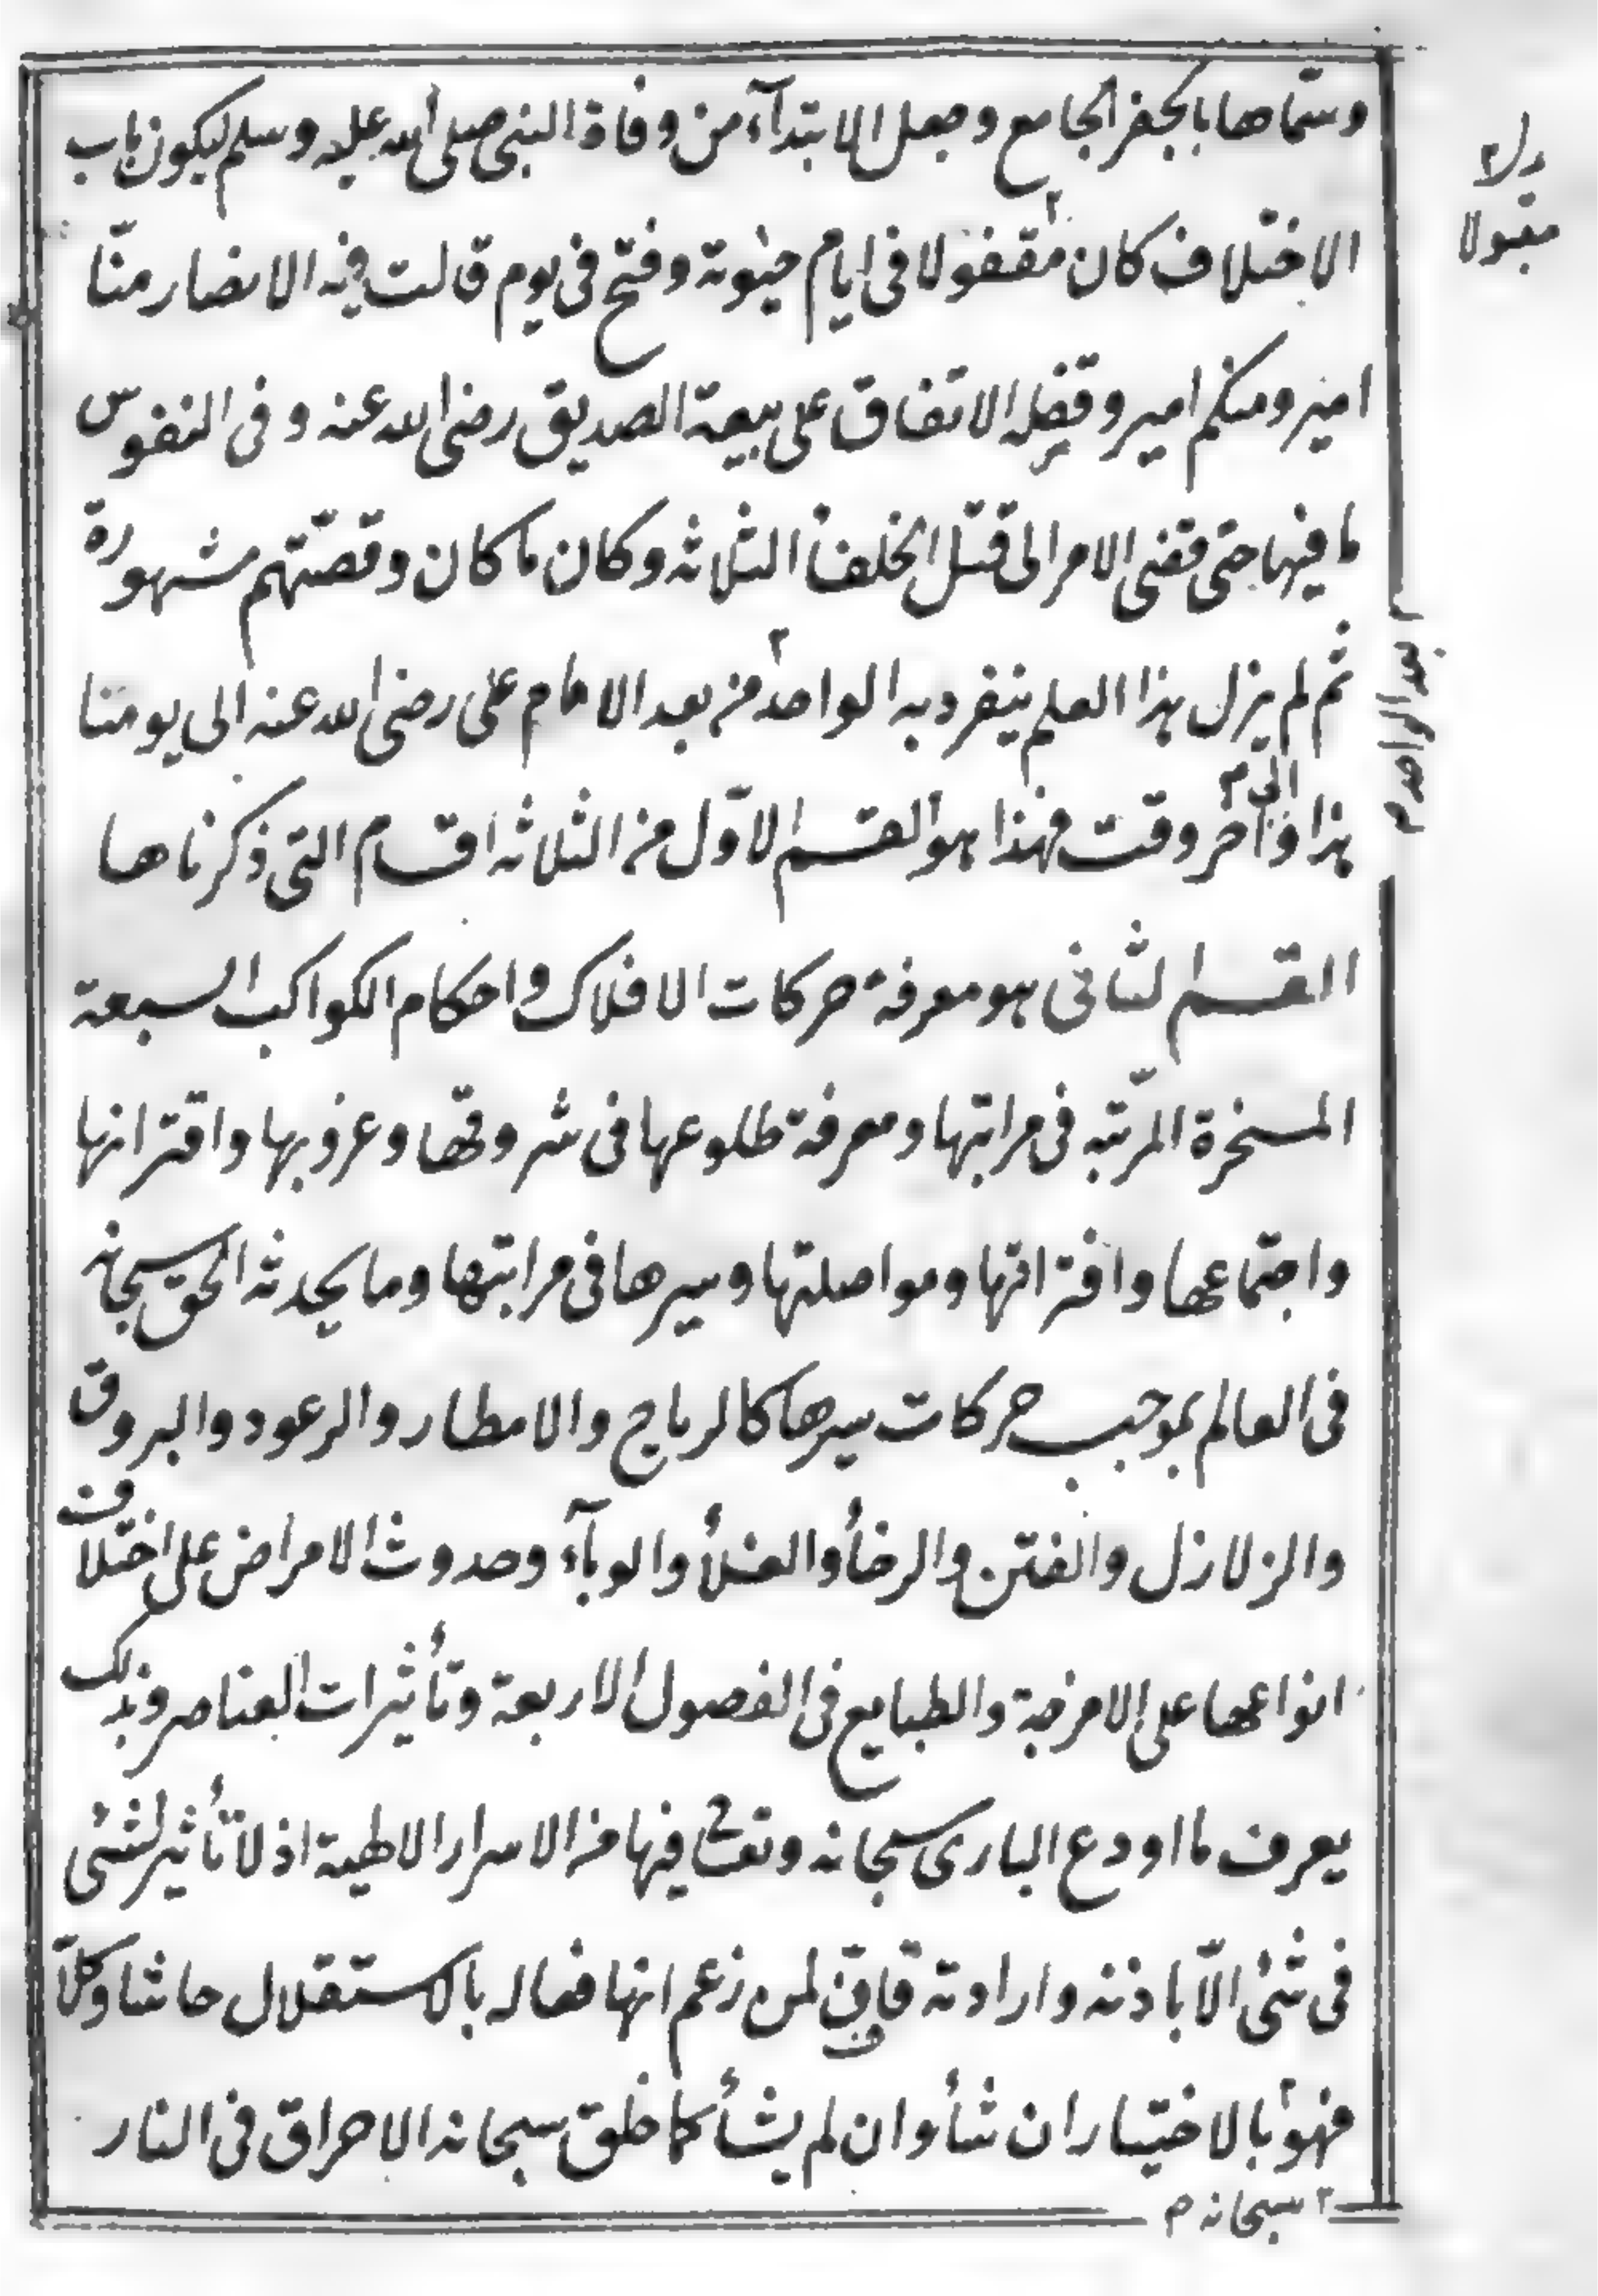 وسمّاها بالجفر الجامع وجعل الابتدآء من وفاة النبى صلى الله عليه وسلم ليكون باب
الاختلاف كان مقفولا فى ايام حيٰوته وفتح فى يوم قالت فيه الانصار منّا
امير ومنكم امير وقفله الاتفاق على بيعة الصديق رضى الله عنه وفى النفوس
ما فيها حتى قضى الامر الى قتل الخلفأ الثلاثه وكان ما كان وقصّتهم مشهورة
ثم لم يزل هذا العلم ينفرد به الواحد من بعد الامام على رضى الله عنه الى يومنا
هذا والى آخر وقت فهذا هو القسم الاوّل من الثلاثه اقسام التى ذكرناها
القسم الثانى هو معرفة حركات الافلاك واحكام الكواكب السبعة
المسخرة المرتّبه فى مراتبها ومعرفة طلوعها فى شروقها وغروبها واقترانها
واجتماعها وافتراقها ومواصلتها وسيرها فى مراتبها وما يحدثه الحق سبحانه
فى العالم بموجب حركات سيرها كالرياح والامطار والرعود والبروق
والزلازل والفتن والرخأ والغلأ والوبآء وحدوث الامراض على اختلاف
انواعها على الامزجة والطبايع فى الفصول الاربعة وتأثيرات العناصر وبذلك
يعرف ما اودع البارى سبحانه وتعٰ فيها من الاسرار الالهية اذ لا تأثير لشئى
فى شئى الّا باذنه وارادته لمن زعم انها فعاله بالاستقلال حاشا وكلّا
فهو بالاختيار ان شأ وان لم يشأ كما خلق سبحانه الاحراق فى النار
مقبولا
بعد الواحد م
سبحانه م